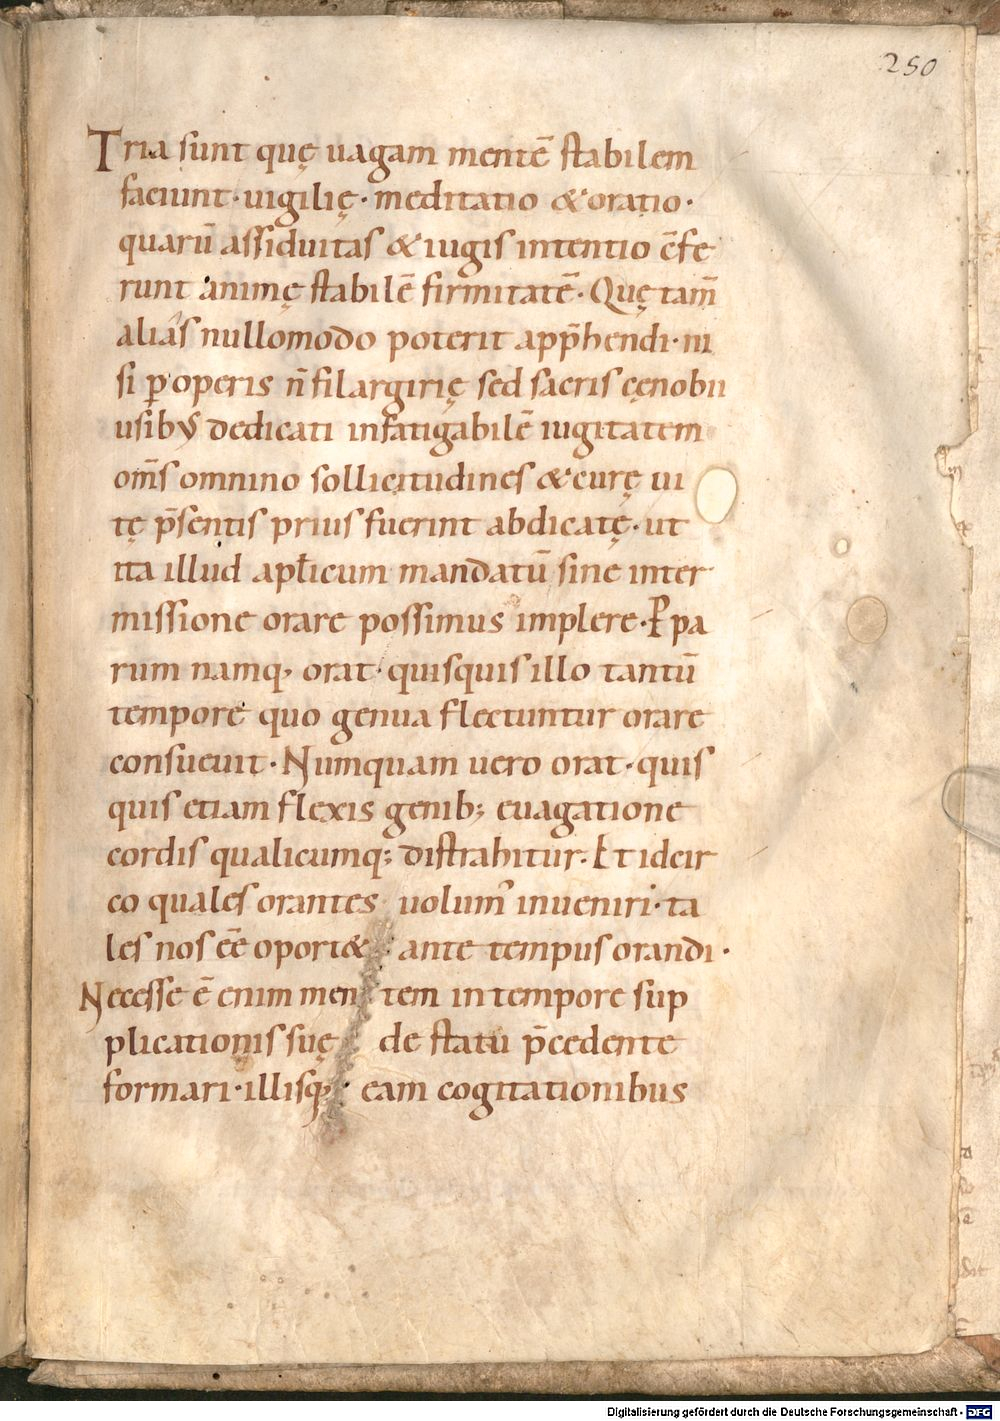 250
Tria sunt quę uagam mentē stabilem
faciunt · uigilię · meditatio & oratio ·
quarū assiduitas & iugis intentio c̄fe
runt animę stabilē firmitatē · Quę tam̄
alias nullomodo poterit app̄hendi · ni
si ꝑ operis n̄ filargirię sed sacris cęnobii
usib; dedicati infatigabilē iugitatem
om̄s omnino sollicitudines & curę ui
tę p̄sentis prius fuerint abdicatę · ut
ita illud apl̄icum mandatū sine inter
missione orare possimus implere · P̱ pa
rum namq; orat · quisquis illo tantū
tempore quo genua flectuntur orare
consueuit · Numquam uero orat · quis
quis etiam flexis genib; euagatione
cordis qualicumq; distrahitur · Et idcir
co quales orantes uolum᾽ inueniri · ta
les nos ēē oport& ante tempus orandi ·
Necesse ē enim men tem in tempore sup
plicationis suę de statu p̄cedente
formari · illisq; eam cogitationibus
Digitalisierung gefördert durch die Deutsche Forschungsgemeinschaft - DFG